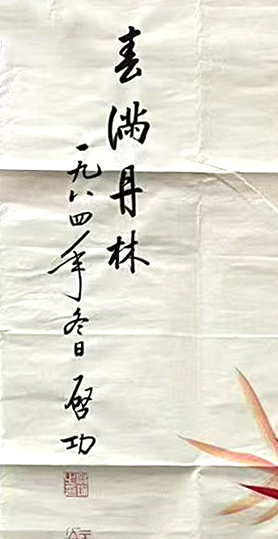 春满丹林
一九八四年冬日 启功